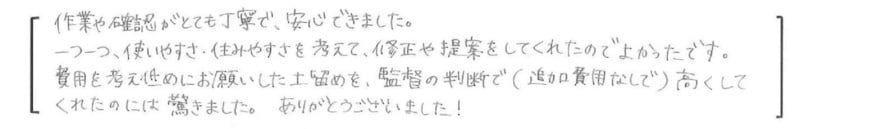 作業や確認がとても丁寧で、安心できました。
一つ一つ、使いやすさ・住みやすさを考えて、修正や提案をしてくれたのでよかったです。
費用を考え低めにお願いした土留めを、監督の判断で(追加費用なしで)高くして
くれたのには驚きました。 ありがとうございました!